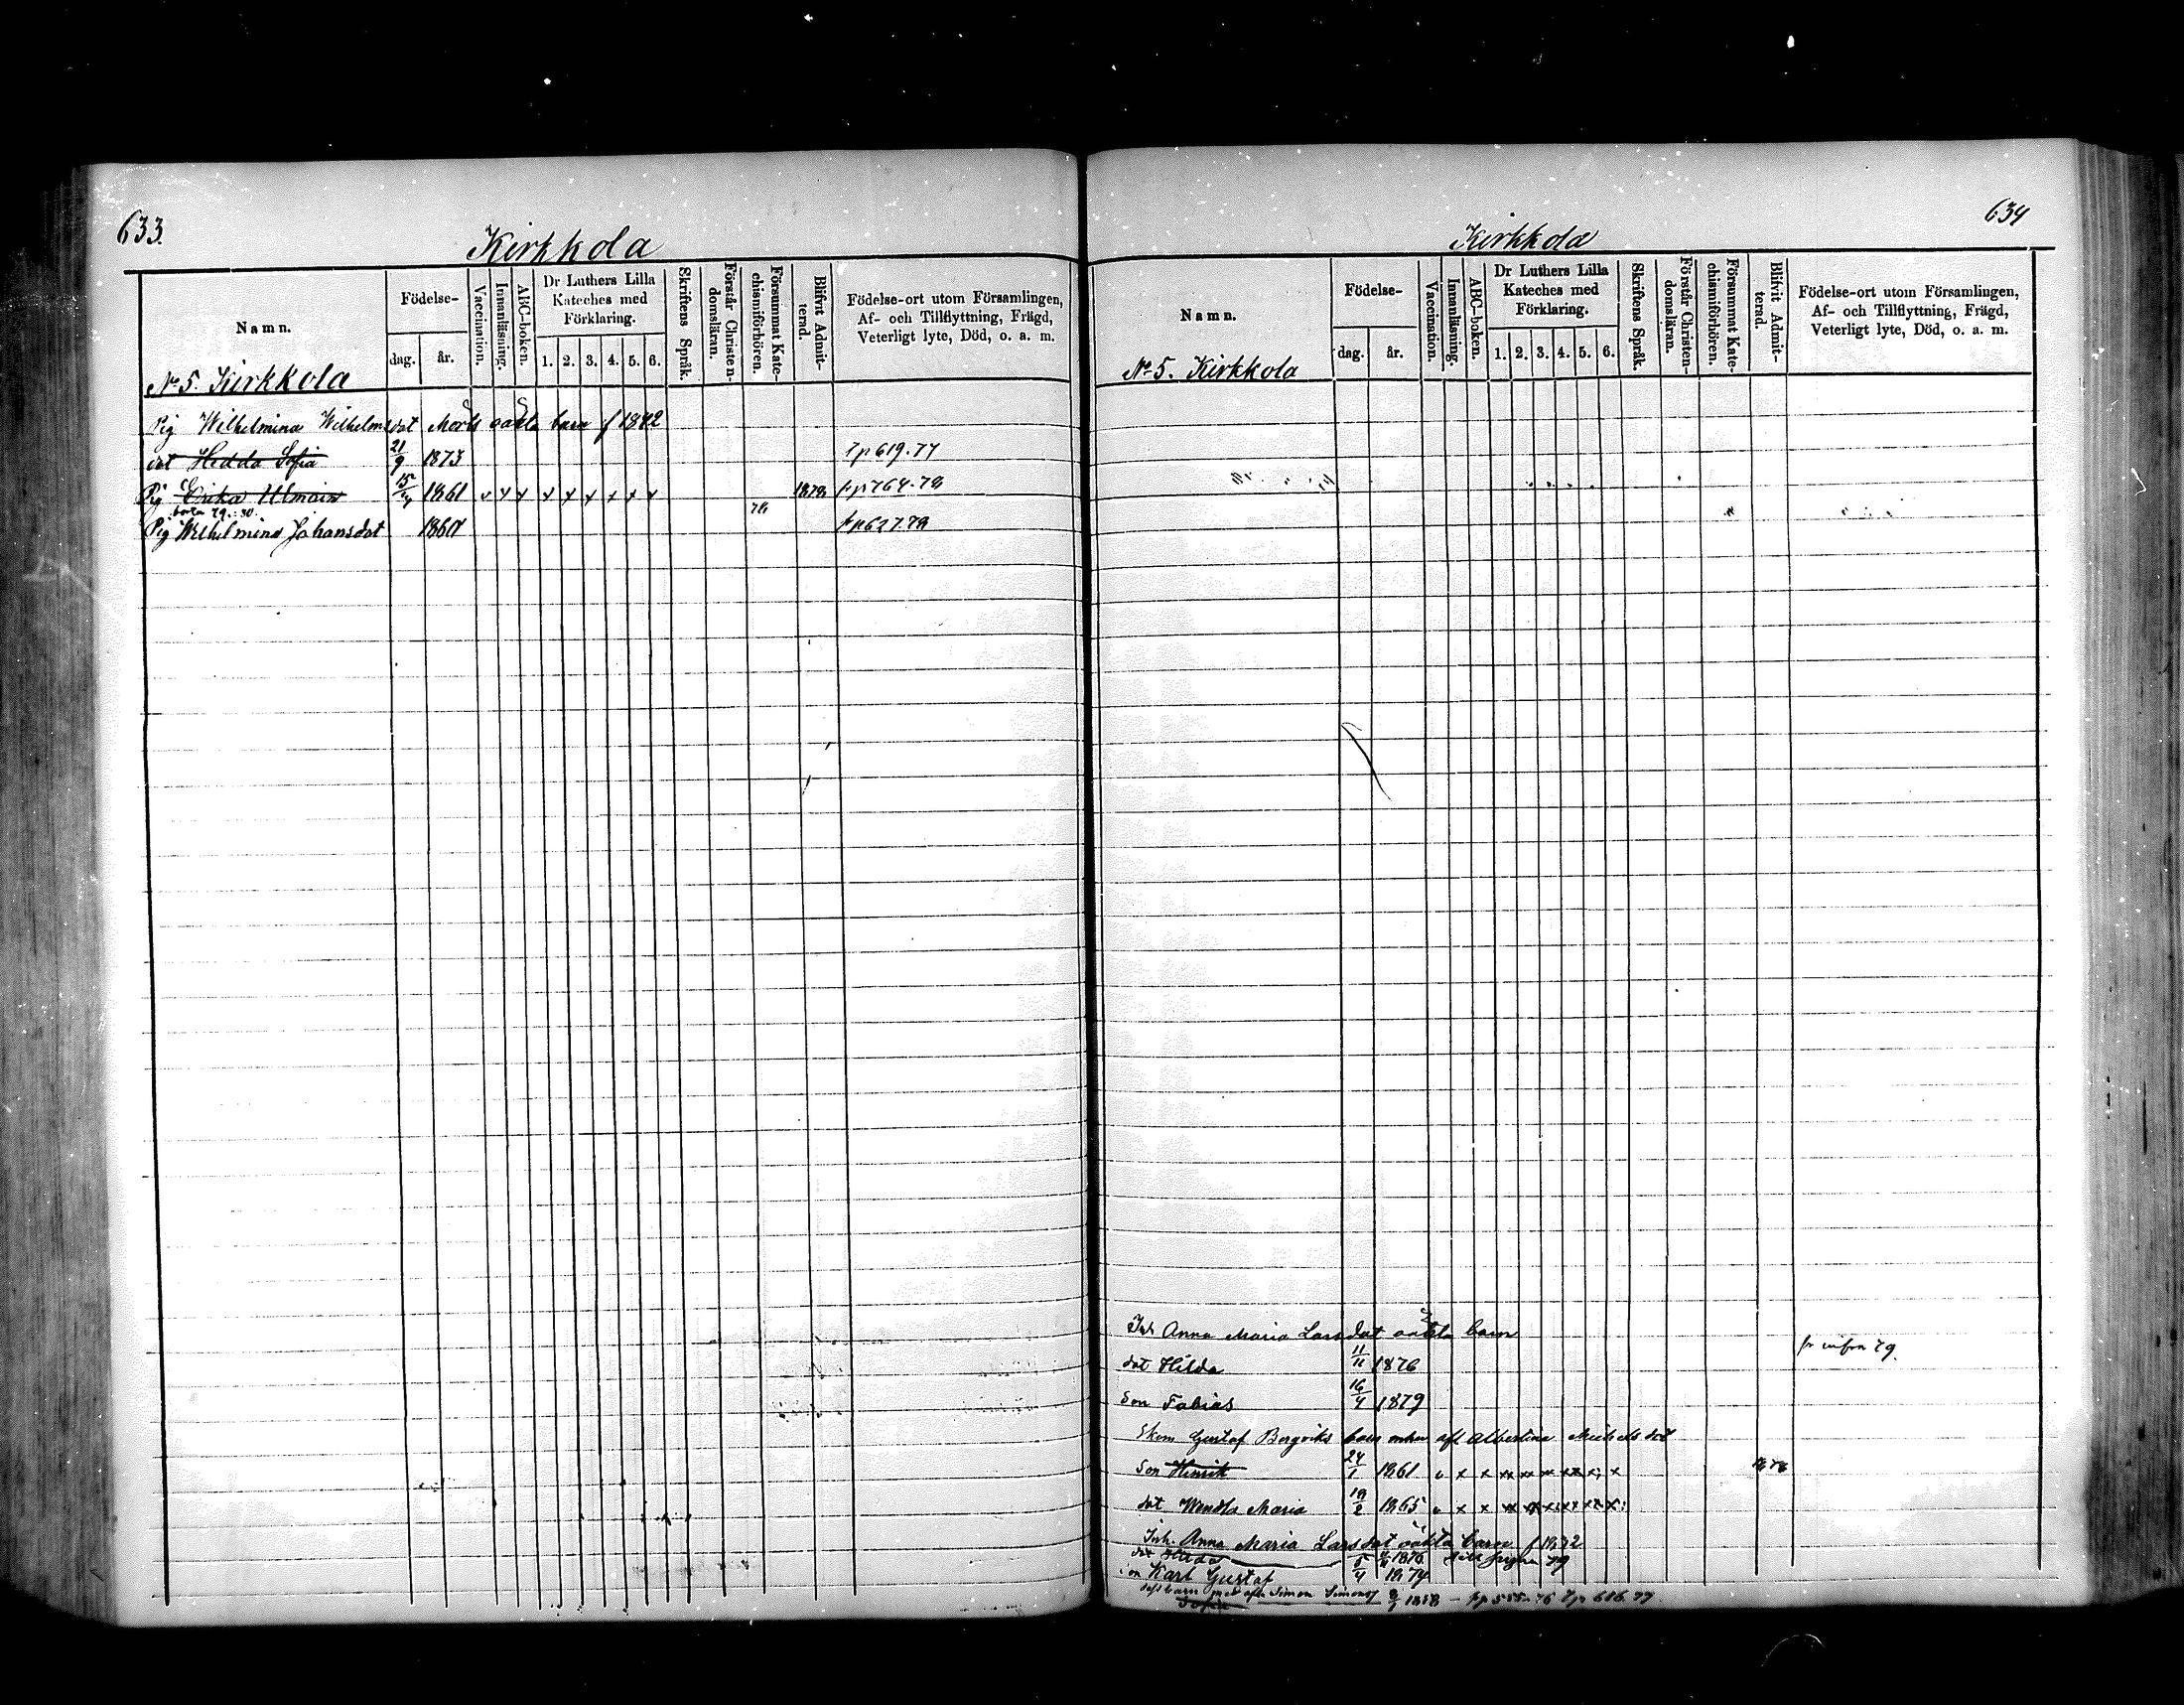 633.
Kirkkola
Namn.
Födelse-
dag.
år.
Vaccination.
Innanläsning.
ABC-boken.
Dr Luthers Lilla
Kateches med
Förklaring.
1. 2. 3. 4. 5. 6.
Skriftens Språk.
Förstår Christen-
domsläran.
Försummat Kate-
chismiförhören.
Blifvit Admit-
terad.
Födelse-ort utom Församlingen,
Af- och Tillflyttning, Frägd,
Veterligt lyte, Död, o. a. m.
No 5. Kirkkola
Pig Wilhelmina Wilhelmsdot barn f 1842
dot Hedda Sofia 21/9 1873 619.77
Pig Erika Ulmain 15/4 1861 v x x x x x x x x 1878 764.78
borta 79.:80.
Pig Wilhelmina Johansdot 1860 78 627.78
634
Kirkkola
Namn.
Födelse-
dag.
år.
Vaccination.
Innanläsning.
ABC-boken.
Dr Luthers Lilla
Kateches med
Förklaring.
1. 2. 3. 4. 5. 6.
Skriftens Språk.
Förstår Christen-
domsläran.
Försummat Kate-
chismiförhören.
Blifvit Admit-
terad.
Födelse-ort utom Församlingen,
Af- och Tillflyttning, Frägd,
Veterligt lyte, Död, o. a. m.
No 5. Kirkkola
Inh Anna Maria Larsdot oäkta barn
dot Hilda 11/11 1876 fr infra 79.
Son Fabias 16/4 1879
Gustaf Bergviks barn afl Albertina Michelsdot
Son Henrik 24/1 1861 1878
dot Wendla Maria 19/2 1865
Inh. Anna Maria Larsdot oäkta barn f 1832
dot Hilda 1876 79
Son Karl Gustaf 5/4 1874
barn med afl. Simon Simonsf 1858 - 555.76 686.77
Sofia